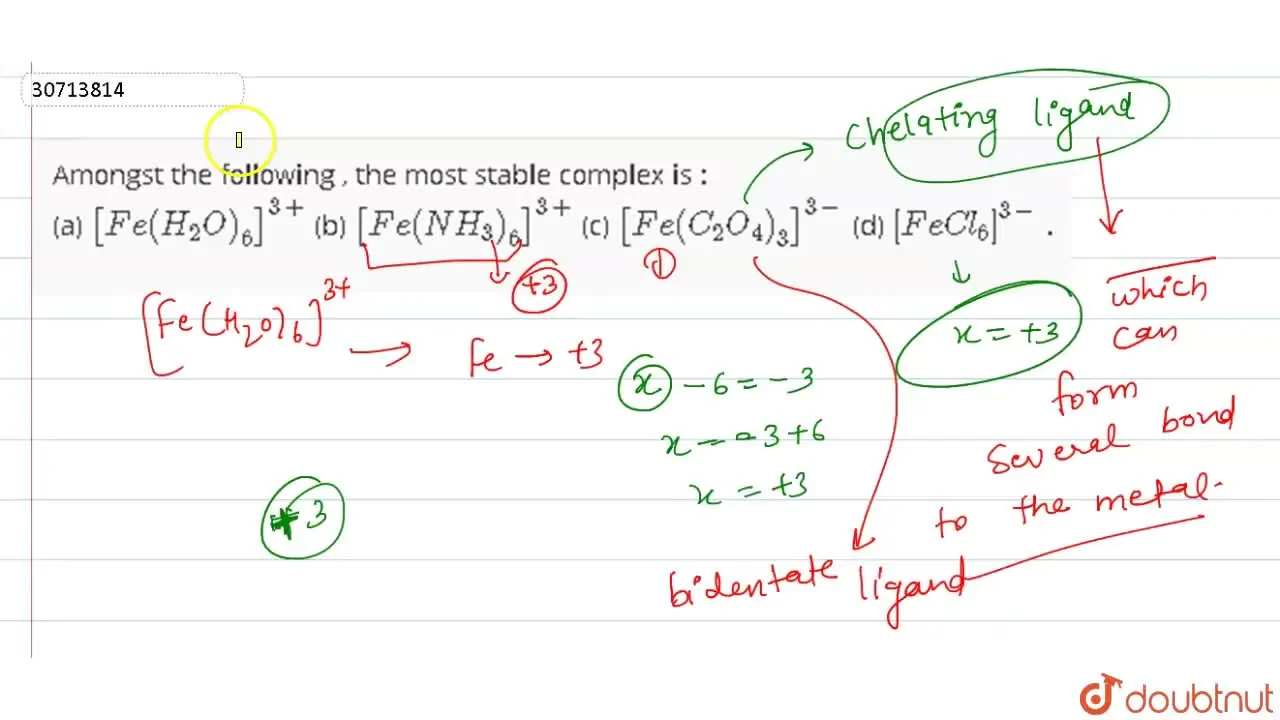 30713814
Amongst the following , the most stable complex is :
(a) [Fe(H₂O)₆]³⁺ (b) [Fe(NH₃)₆]³⁺ (c) [Fe(C₂O₄)₃]³⁻ (d) [FeCl₆]³⁻ .
chelating ligand
which
can
form
several bond
to the metal.
+3
[Fe(H₂O)₆]³⁺ → Fe → +3
x = +3
x - 6 = -3
x = -3+6
x = +3
+3
bidentate ligand
doubtnut